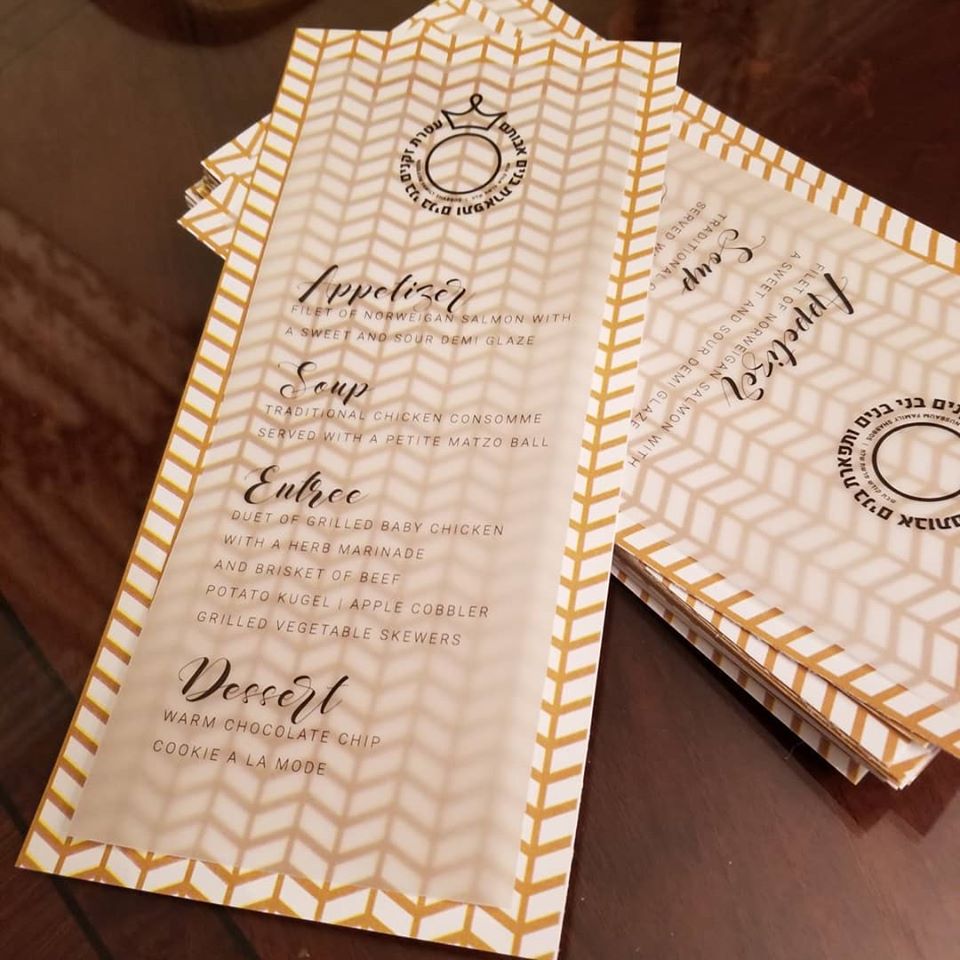 עטרת זקנים בני בנים ותפארת בנים אבותם
Appetizer
FILET OF NORWEIGAN SALMON WITH
A SWEET AND SOUR DEMI GLAZE
Soup
TRADITIONAL CHICKEN CONSOMME
SERVED WITH A PETITE MATZO BALL
Entree
DUET OF GRILLED BABY CHICKEN
WITH A HERB MARINADE
AND BRISKET OF BEEF
POTATO KUGEL | APPLE COBBLER
GRILLED VEGETABLE SKEWERS
Dessert
WARM CHOCOLATE CHIP
COOKIE A LA MODE
בנים בני בנים ותפארת בנים אבותם
NUSBAUM FAMILY SHABBOS
Appetizer
FILET OF NORWEIGAN SALMON WITH
A SWEET AND SOUR DEMI GLAZE
Soup
TRADITIONAL
SERVED